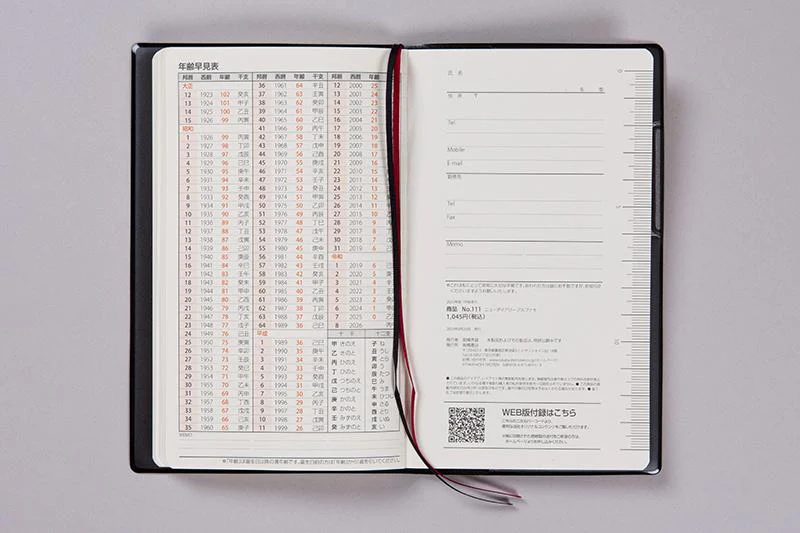 年齢早見表
邦暦 西暦 年齢 干支
大正
12 1923 102 癸亥
13 1924 101 甲子
14 1925 100 乙丑
15 1926 99 丙寅
昭和
1 1926 99 丙寅
2 1927 98 丁卯
3 1928 97 戊辰
4 1929 96 己巳
5 1930 95 庚午
6 1931 94 辛未
7 1932 93 壬申
8 1933 92 癸酉
9 1934 91 甲戌
10 1935 90 乙亥
11 1936 89 丙子
12 1937 88 丁丑
13 1938 87 戊寅
14 1939 86 己卯
15 1940 85 庚辰
16 1941 84 辛巳
17 1942 83 壬午
18 1943 82 癸未
19 1944 81 甲申
20 1945 80 乙酉
21 1946 79 丙戌
22 1947 78 丁亥
23 1948 77 戊子
24 1949 76 己丑
25 1950 75 庚寅
26 1951 74 辛卯
27 1952 73 壬辰
28 1953 72 癸巳
29 1954 71 甲午
30 1955 70 乙未
31 1956 69 丙申
32 1957 68 丁酉
33 1958 67 戊戌
34 1959 66 己亥
35 1960 65 庚子
MEMO
邦暦 西暦 年齢 干支
36 1961 64 辛丑
37 1962 63 壬寅
38 1963 62 癸卯
39 1964 61 甲辰
40 1965 60 乙巳
41 1966 59 丙午
42 1967 58 丁未
43 1968 57 戊申
44 1969 56 己酉
45 1970 55 庚戌
46 1971 54 辛亥
47 1972 53 壬子
48 1973 52 癸丑
49 1974 51 甲寅
50 1975 50 乙卯
51 1976 49 丙辰
52 1977 48 丁巳
53 1978 47 戊午
54 1979 46 己未
55 1980 45 庚申
56 1981 44 辛酉
57 1982 43 壬戌
58 1983 42 癸亥
59 1984 41 甲子
60 1985 40 乙丑
61 1986 39 丙寅
62 1987 38 丁卯
63 1988 37 戊辰
64 1989 36 己巳
平成
1 1989 36 己巳
2 1990 35 庚午
3 1991 34 辛未
4 1992 33 壬申
5 1993 32 癸酉
6 1994 31 甲戌
7 1995 30 乙亥
8 1996 29 丙子
9 1997 28 丁丑
10 1998 27 戊寅
11 1999 26 己卯
邦暦 西暦 年齢
12 2000 25
13 2001 24
14 2002 23
15 2003 22
16 2004 21
17 2005 20
18 2006 19
19 2007 18
20 2008 17
21 2009 16
22 2010 15
23 2011 14
24 2012 13
25 2013 12
26 2014 11
27 2015 10
28 2016 9
29 2017 8
30 2018 7
31 2019 6
令和
1 2019 6
2 2020 5
3 2021 4
4 2022 3
5 2023 2
6 2024 1
7 2025 0
8 2026
十干 十二支
甲 きのえ 子 ね
乙 きのと 丑 うし
丙 ひのえ 寅 とら
丁 ひのと 卯 う
戊 つちのえ 辰 たつ
己 つちのと 巳 み
庚 かのえ 午 うま
辛 かのと 未 ひつじ
壬 みずのえ 申 さる
癸 みずのと 酉 とり
戌 いぬ
亥 い
氏 名
住 所 〒
Tel
Mobile
E-mail
勤務先
Tel
Fax
Memo
商品 No.111 ニューダイアリー アルファ 6
1,045円(税込)
WEB版付録はこちら
こちらの二次元バーコードより、
便利な当社オリジナルコンテンツをご覧いただけます。
ホームページよりお申し込みください。
5
10